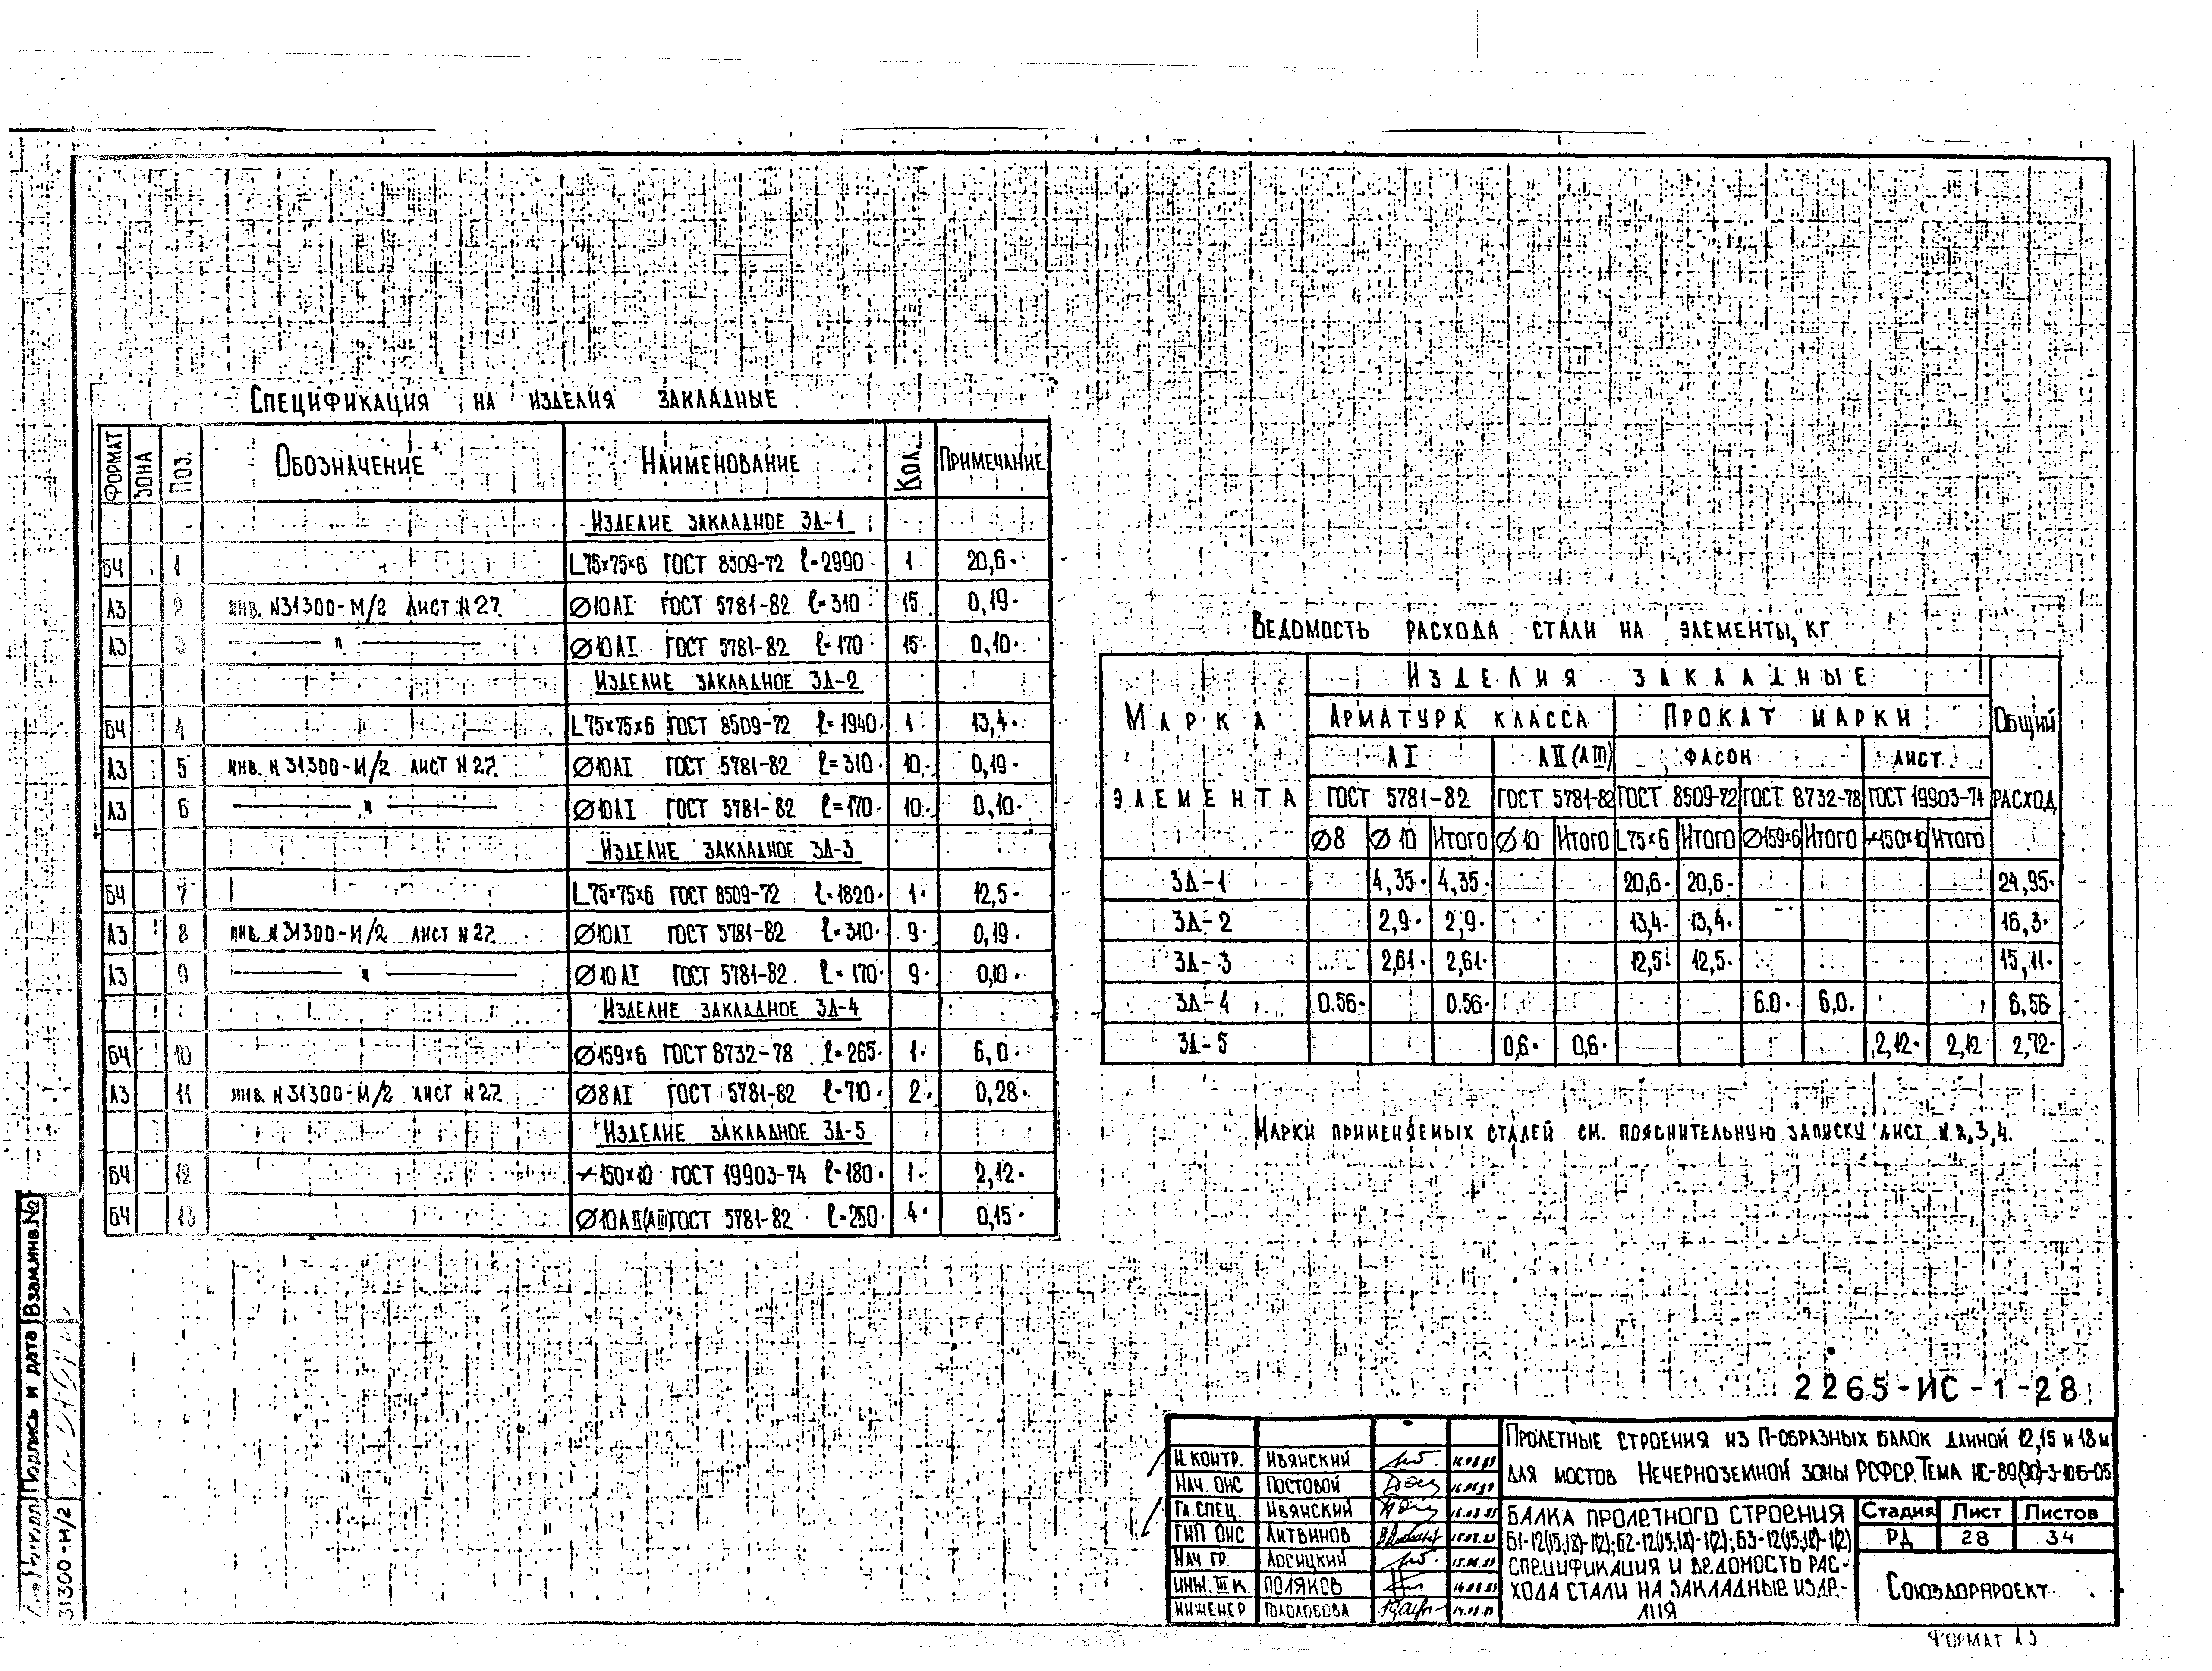 Спецификация на изделия закладные
Формат Зона Поз. Обозначение Наименование Кол. Примечание
Изделие закладное ЗД-1
БЧ 1 L75×75×6 ГОСТ 8509-72 ℓ=2990 1 20,6
А3 2 инв. N31300-М/2 лист N27 ∅10АI ГОСТ 5781-82 ℓ=310 15 0,19
А3 3 — " — ∅10АI ГОСТ 5781-82 ℓ=170 15 0,10
Изделие закладное ЗД-2
БЧ 4 L75×75×6 ГОСТ 8509-72 ℓ=1940 1 13,4
А3 5 инв. N31300-М/2 лист N27 ∅10АI ГОСТ 5781-82 ℓ=310 10 0,19
А3 6 — " — ∅10АI ГОСТ 5781-82 ℓ=170 10 0,10
Изделие закладное ЗД-3
БЧ 7 L75×75×6 ГОСТ 8509-72 ℓ=1820 1 12,5
А3 8 инв. N31300-М/2 лист N27 ∅10АI ГОСТ 5781-82 ℓ=310 9 0,19
А3 9 — " — ∅10АI ГОСТ 5781-82 ℓ=170 9 0,10
Изделие закладное ЗД-4
БЧ 10 ∅159×6 ГОСТ 8732-78 ℓ=265 1 6,0
А3 11 инв. N31300-М/2 лист N27 ∅8АI ГОСТ 5781-82 ℓ=710 2 0,28
Изделие закладное ЗД-5
БЧ 12 -150×10 ГОСТ 19903-74 ℓ=180 1 2,12
БЧ 13 ∅10АII(АIII) ГОСТ 5781-82 ℓ=250 4 0,15
Ведомость расхода стали на элементы, кг
Марка элемента Изделия закладные Общий расход
Арматура класса Прокат марки
АI АII(АIII) фасон лист
ГОСТ 5781-82 ГОСТ 5781-82 ГОСТ 8509-72 ГОСТ 8732-78 ГОСТ 19903-74
∅8 ∅10 Итого ∅10 Итого L75×6 Итого ∅159×6 Итого -150×10 Итого
ЗД-1 4,35 4,35 20,6 20,6 24,95
ЗД-2 2,9 2,9 13,4 13,4 16,3
ЗД-3 2,61 2,61 12,5 12,5 15,11
ЗД-4 0.56 0.56 6.0 6,0 6,56
ЗД-5 0,6 0,6 2,12 2,12 2,72
Марки применяемых сталей см. пояснительную записку лист N 2,3,4.
2265-ИС-1-28
Н. контр. Ивянский 16.08.89
Нач. ОИС Постовой 16.08.89
Гл. спец. Ивянский 16.08.89
ГИП ОИС Литвинов 15.08.89
Нач гр. Лосицкий 15.08.89
Инж. III к. Поляков 14.08.89
Инженер Гололобова 14.08.89
Пролетные строения из П-образных балок длиной 12,15 и 18 м
для мостов Нечерноземной зоны РСФСР. Тема ИС-89(90)-3-10Б-05
Балка пролетного строения
Б1-12(15,18)-1(2); Б2-12(15,18)-1(2); Б3-12(15,18)-1(2)
Спецификация и ведомость рас-
хода стали на закладные изде-
лия
Стадия Лист Листов
РД 28 34
Союздорпроект
Формат А3
Взам.инв.№
Подпись и дата
31300-М/2